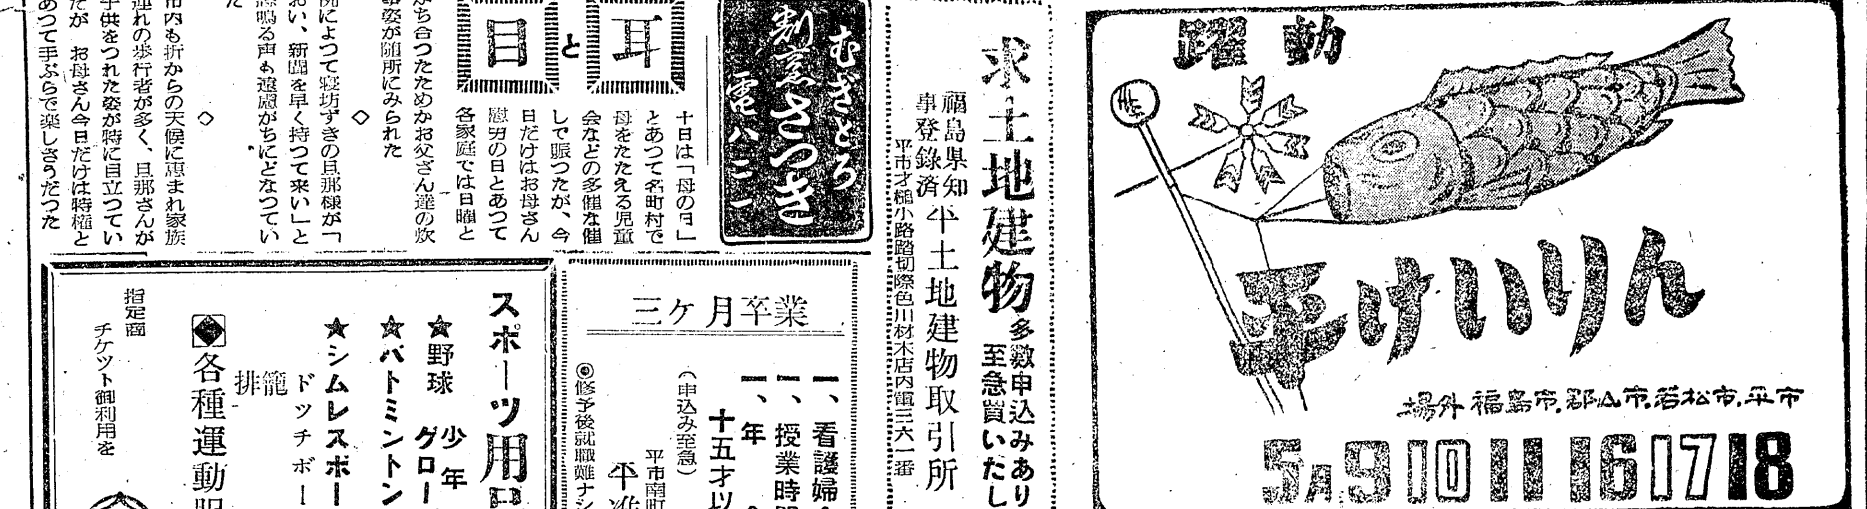 躍動
平けいりん
場外 福島市.郡山市.若松市.平市
5月9 10 11 16 17 18
求土地建物
多数申込みあり
至急買いたし
福島県知
事登録済
平土地建物取引所
平市才槌小路踏切際色川材木店内電三六一番
むぎとろ
割烹さつき
電八二一
耳と目
十日は「母の日」
とあつて各町村で
母をたたえる児童
会などの多催な催
しで賑つたが、今
日だけはお母さん
慰労の日とあつて
各家庭では日曜と
かち合つたためかお父さん達の炊
事姿が随所にみられた
◇
例によつて寝坊ずきの旦那様が「
おい、新聞を早く持つて来い」と
怒鳴る声も遠慮がちにどなつてい
た
◇
市内も折からの天候に恵まれ家族
連れの歩行者が多く、旦那さんが
子供をつれた姿が特に目立つてい
たが お母さん今日だけは特権と
あつて手ぶらで楽しさうだつた
三ケ月卒業
一、看護婦
一、授業時間
一、年
十五才以
(申込み至急)
平市南町
平准
◎修予後就職難ナシ
スポーツ用
★野球 少年
グロー
★バトミントン
★シムレスボー
ドッチボー
籠
排
各種運動
指定商
チケツト御利用を